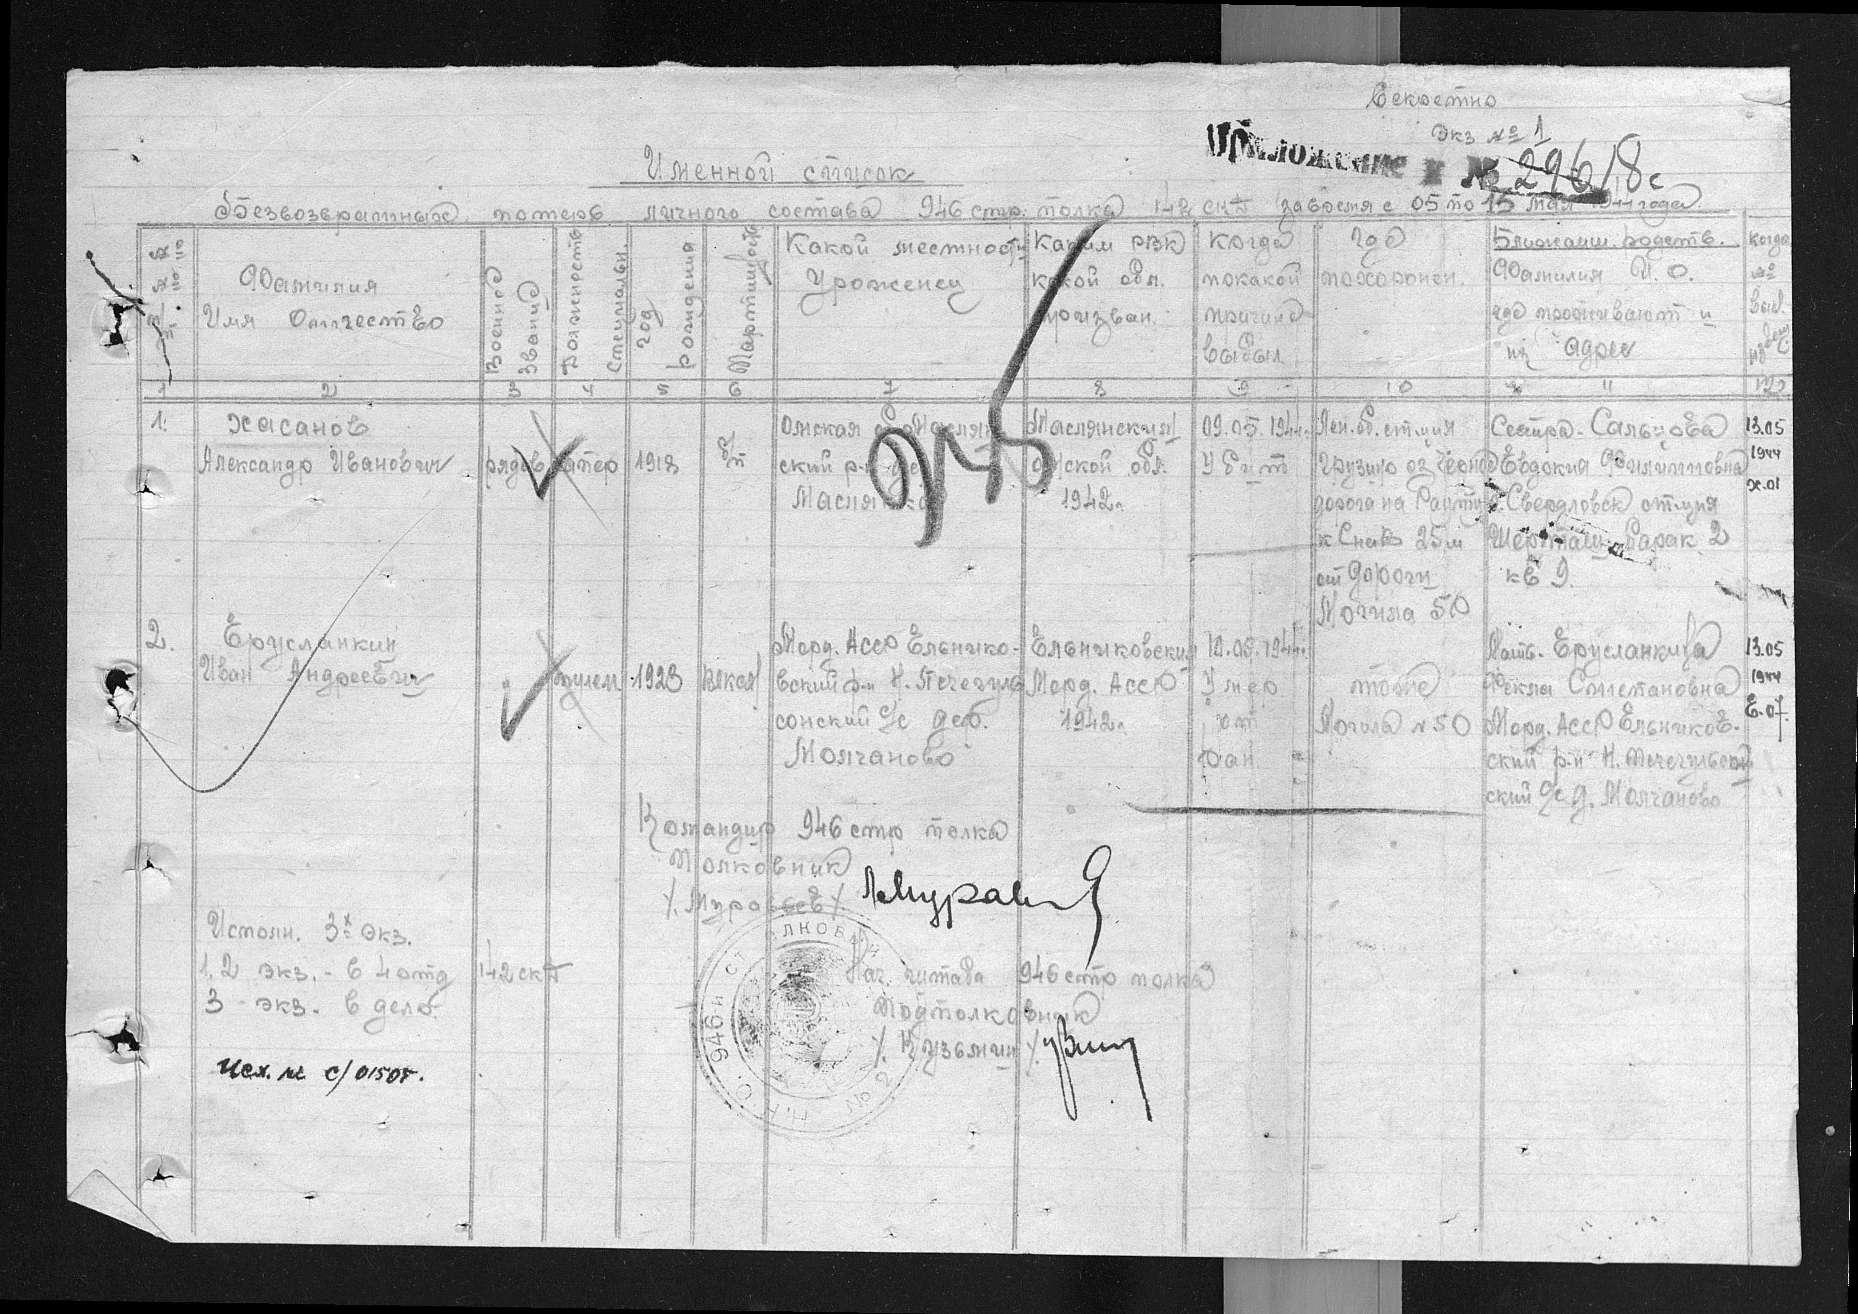 Секретно
Экз № 1
Приложение к № 29618с
Именной список
безвозвратных потерь личного состава 946 стр. полка 142 скд за время с 05 по 15 мая 1944 года
№№ по
Фамилия
Имя Отчество
Военное звание
Должность специальн.
год рождения
Партийность
Какой местности
Уроженец
Каким РВК
какой обл.
призван.
Когда
по какой
причине
выбыл
где
похоронен.
Ближайш. родств.
Фамилия И. О.
где проживают и
их адрес
когда
№
выс.
1 2 3 4 5 6 7 8 9 10 11 12
1. Хасанов
Александр Иванович
рядов
1918
б/п
Омская обл Маслян
ский р-н
Маслянка
Маслянский
Омской обл.
1942г
09.05.1944г.
Убит
Лен. об. станция
Грузино
дорога на Рапту
к Сн 25 м
от дороги
Могила 50
Сестра - Сальцова
Евдокия Филипповна
г. Свердловск станция
барак 2
кв 9.
13.05
1944
х.01
2. Ерусланкин
Иван Андреевич
"
пулем
1923
влксм
Морд. АССР Ельнико-
вский р-н Н.
сонский с/с дер.
Молчаново
Ельниковский
Морд. АССР
1942г
10.05.1944г.
Умер
от
ран
тоже
Могила № 50
Мать - Ерусланкина
Фекла Степановна
Морд. АССР Ельников.
ский р-н Н.
ский с/с д. Молчаново
13.05
1944
Е.07
946
Командир 946 стр полка
Полковник
/. Муравьев /.
Исполн. 3х экз.
1, 2 экз. - в 4 отд 142 скд
3 - экз. в дело.
Нач. штаба 946 стр полка
Подполковник
/. Кузьмин /.
Исх. № с/0150г.